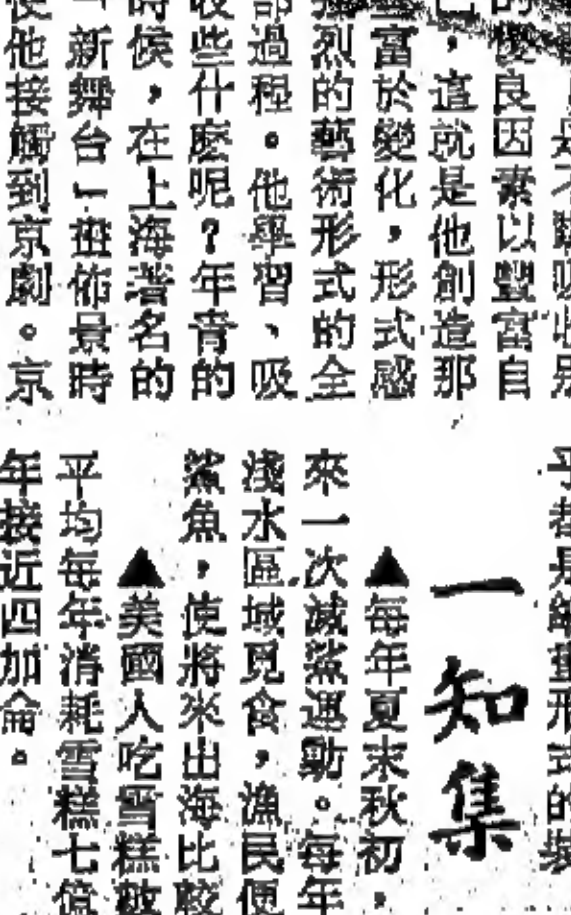 的優良因素以豐富自
己,這就是他創造那
富於變化,形式感
烈的藝術形式的全
部過程。他學習、吸
收些什麽呢?年青的
時候,在上海著名的
「新舞台」逛佈景時
使他接觸到京劇。京
乎都是
形式的
一知集
▲每年夏末秋初,
來一次滅鯊運動。每年
淺水區域覓食,漁民便
鯊魚,使將來出海比較
▲美國人吃雪糕
平均每年消耗雪糕七
年接近四加侖。